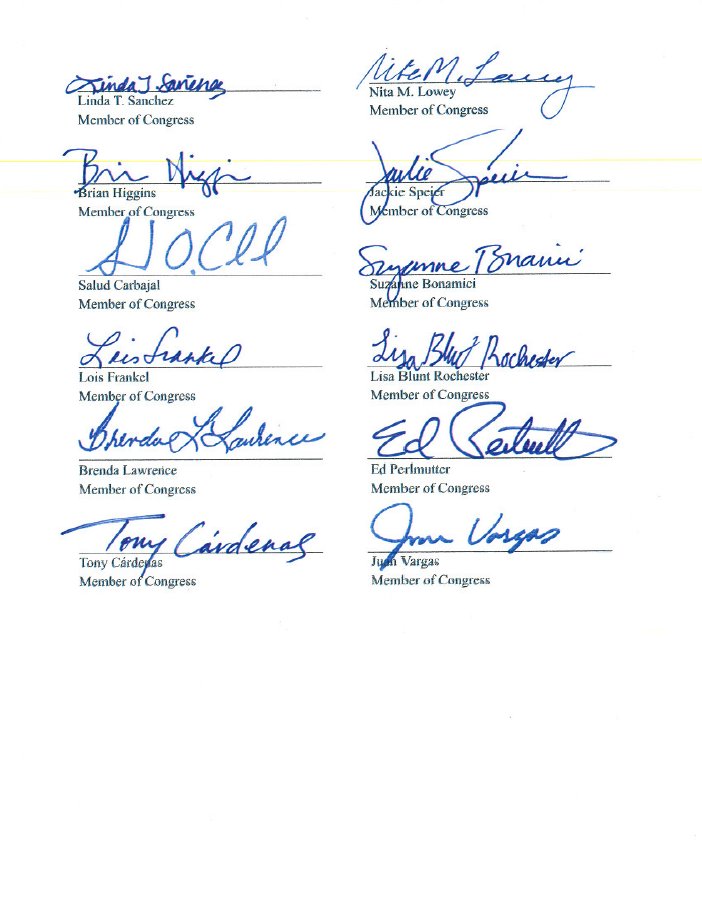 Linda T. Sanchez
Linda T. Sanchez
Member of Congress
Nita M. Lowey
Nita M. Lowey
Member of Congress
Brian Higgins
Brian Higgins
Member of Congress
Jackie Speier
Jackie Speier
Member of Congress
Salud Carbajal
Member of Congress
Suzanne Bonamici
Suzanne Bonamici
Member of Congress
Lois Frankel
Lois Frankel
Member of Congress
Lisa Blunt Rochester
Lisa Blunt Rochester
Member of Congress
Brenda L Lawrence
Brenda Lawrence
Member of Congress
Ed Perlmutter
Ed Perlmutter
Member of Congress
Tony Cárdenas
Tony Cárdenas
Member of Congress
Juan Vargas
Juan Vargas
Member of Congress